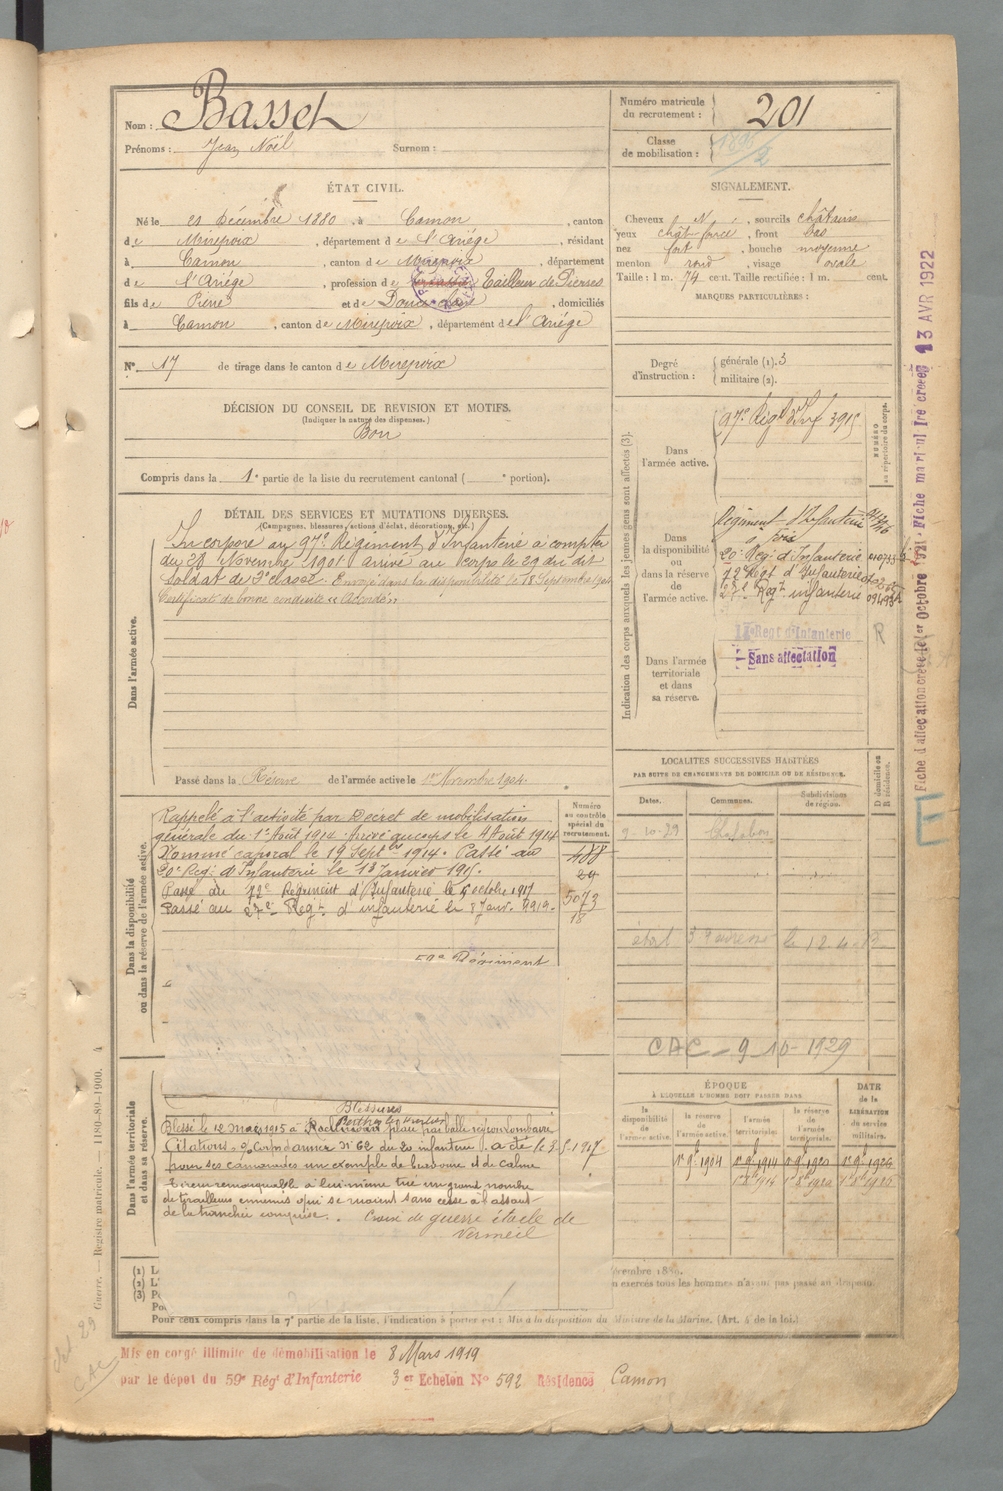 Nom : Basset
Prénoms : Jean Noël Surnom :
Numéro matricule du recrutement : 201
Classe de mobilisation :
ÉTAT CIVIL.
Né le 21 Décembre 1880, à Camon, canton
de Mirepoix, département de l'Ariége, résidant
à Camon, canton de Mirepoix, département
d e l'Ariége, profession de Tailleur de Pierres
fils de Pierre et de , domiciliés
à Camon, canton de Mirepoix, département de l'Ariége
No 17 de tirage dans le canton de Mirepoix
DÉCISION DU CONSEIL DE REVISION ET MOTIFS.
(Indiquer la nature des dispenses.)
Bon
Compris dans la 1e partie de la liste du recrutement cantonal ( e portion).
SIGNALEMENT.
Cheveux N, sourcils châtains
yeux chât foncé, front bas
nez fort, bouche moyenne
menton rond, visage ovale
Taille : 1 m. 74 cent. Taille rectifiée : 1 m. cent.
MARQUES PARTICULIÈRES :
Degré d'instruction : générale (1). 3
militaire (2).
DÉTAIL DES SERVICES ET MUTATIONS DIVERSES.
(Campagnes, blessures, actions d'éclat, décorations, etc.)
Dans l'armée active.
Incorporé au 97e Régiment d'Infanterie à compter
du 28 Novembre 1901 arrivé au corps le 29 du dit
Soldat de 2e classe. Envoyé dans la disponibilité le 18 Septembre 1904
Certificat de bonne conduite « Accordé »
Passé dans la Réserve de l'armée active le 1er Novembre 1904.
Dans la disponibilité ou dans la réserve de l'armée active.
Rappelé à l'activité par Décret de mobilisation
générale du 1er Août 1914. Arrivé au corps le 4 Août 1914
Nommé caporal le 19 Septbre 1914. Passé au
20e Reg. d'Infanterie le 13 Janvier 1915.
Passé au 72e Régiment d'Infanterie le 5 octobre 1917
Passé au 27e Regt d'infanterie le 8 Janv. 1919.
59e Régiment
Numéro au contrôle spécial du recrutement.
488
24
5073
18
Dans l'armée territoriale et dans sa réserve.
Blessures
Blessé le 12 mars 1915 à plaie par balle région lombaire
Citations. O/ Corps d'armée No 62 du 20 infanterie. a été le 3.5.1917
pour ses camarades un exemple de bravoure et de calme
Tireur remarquable à lui même tué un grand nombre
de tirailleurs ennemis qui se ruaient sans cesse à l'assaut
de la tranchée conquise. Croix de guerre étoile de
vermeil
Indication des corps auxquels les jeunes gens sont affectés (3).
Dans l'armée active.
97e Régt d'Inf 3915
NUMÉRO au répertoire du corps.
Dans la disponibilité ou dans la réserve de l'armée active.
Régiment d'Infanterie
à Foix
20 Reg. d'Infanterie
72 Régt d'Infanterie
27e Regt infanterie
Dans l'armée territoriale et dans sa réserve.
Regt d'Infanterie
Sans affectation
R
LOCALITÉS SUCCESSIVES HABITÉES
PAR SUITE DE CHANGEMENTS DE DOMICILE OU DE RÉSIDENCE.
Dates. Communes. Subdivisions de région. D domicile ou R résidence.
9-10-29
CAC - 9-10-1929
ÉPOQUE
À LAQUELLE L'HOMME DOIT PASSER DANS
la disponibilité de l'armée active. la réserve de l'armée active. l'armée territoriale. la réserve de l'armée territoriale.
DATE de la LIBÉRATION du service militaire.
1er 9bre 1904 1er 9bre 1914 1er 9bre 1920 1er 9bre 1926
(1)
(2)
(3)
n exercés tous les hommes n'ayant pas passé au drapeau.
Pour ceux compris dans la 7e partie de la liste, l'indication à porter est : Mis à la disposition du Ministre de la Marine. (Art. 4 de la loi.)
Mis en congé illimité de démobilisation le 8 Mars 1919
par le dépot du 59e Régt d'Infanterie 3er Echelon No 592 Résidence Camon
Guerre. — Registre matricule. — 1180-89-1900. 4
Fiche d'affectation créée le 1er Octobre 1921. Fiche matricule créée 13 AVR 1922
E
CAC